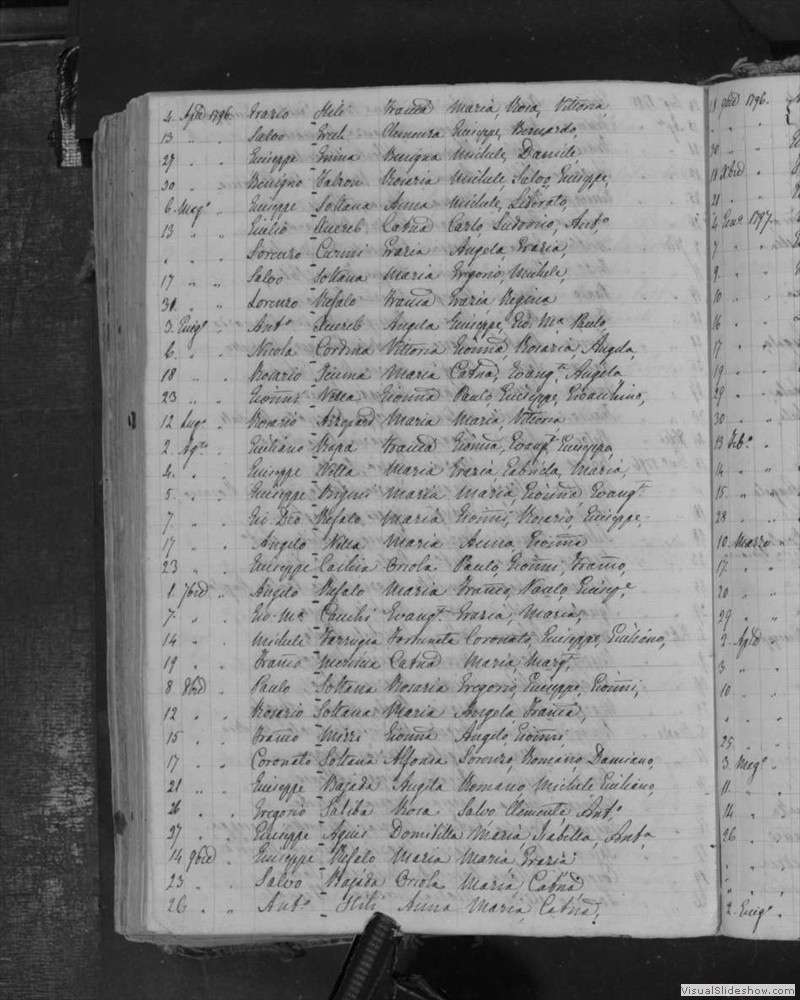 4 Aple 1796. Grazio Hili Franca Maria, Rosa, Vittoria
13 " " Salvo Grech Clemenza Giuseppe, Bernardo,
27 " " Giuseppe Benigna Michele, Daniele
30 " " Benigno Rosaria Michele, Salvo, Giuseppe,
6 Magº " Giuseppe Soltana Anna Michele, Liborato,
13 " " Giulio Xuereb Catna Carlo, Ludovico, Antº
" " " Lorenzo Curmi Grazia Angela, Grazia,
17 " " Salvo Soltana Maria Gregorio, Michele,
31 " " Lorenzo Refalo Franca Grazia Regina
3 Giugº " Antº Xuereb Angela Giuseppe, Gio. Mª Paulo,
6 " " Nicola Cordina Vittoria Gionna, Rosaria, Angela,
18 " " Rosario Maria Catna, Evangª, Angela
23 " " Gionni Vella Gionna Paulo, Giuseppe, Gioachino,
12 Lugº " Rosario Azzopard Maria Maria, Vittoria
2 Agto " Giuliano Rapa Franca Gionna, Evangª Giuseppa,
4 " " Giuseppe Vella Maria Grazia, Maria,
5 " " Giuseppe Maria Maria, Gionna, Evangª
7 " " Gio. Bta Refalo Maria Gionni, Rosario, Giuseppe,
17 " " Angelo Vella Maria Anna, Gionna
23 " " Giuseppe Orsola Paulo, Gionni, Franco,
1 7bre " Angelo Refalo Maria Franco, Paulo, Giusee
7 " " Gio. Mª Evangª Grazia, Maria,
14 " " Michele Farrugia Fortunata Coronato, Giuseppe, Giuliano,
19 " " Franco Messina Catna Maria, Margª
8 8bre " Paulo Soltana Rosaria Gregorio, Giuseppe, Gionni,
12 " " Rosario Soltana Maria Angela, Franca,
15 " " Franco Mizzi Gionna Angelo, Gionni,
17 " " Coronato Soltana Alfonsa Lorenzo, Romano, Damiano,
21 " " Giuseppe Bajada Angela Romano, Michele, Giuliano,
26 " " Gregorio Saliba Rosa Salvo, Clemente, Antº
27 " " Giuseppe Agius Domitilla Maria, Isabella, Antª
14 9bre " Giuseppe Refalo Maria Maria, Grazia
23 " " Salvo Bajada Orsola Maria, Catna
26 " " Antº Hili Anna Maria, Catna,
18 9bre 1796.
" "
30 " "
18 Xbre "
21 " "
4 Gen. 1797.
7 " "
9 " "
10 " "
16 " "
17 " "
19 " "
29 " "
30 " "
13 Febº "
14 " "
15 " "
28 " "
10 Marzo "
17 " "
20 " "
29 " "
2 Aple "
3 " "
10 " "
" " "
25 " "
3 Magº "
11 " "
14 " "
26 " "
" " "
" " "
2 Giugº "
VisualSlideshow.com